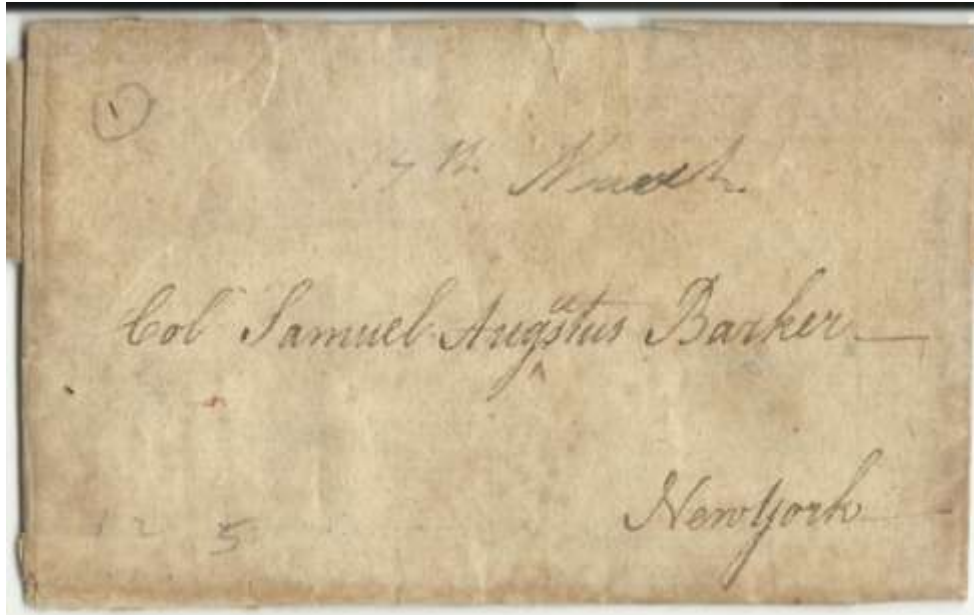 1
17th
Col Samuel Augustus Barker
New York
12 5